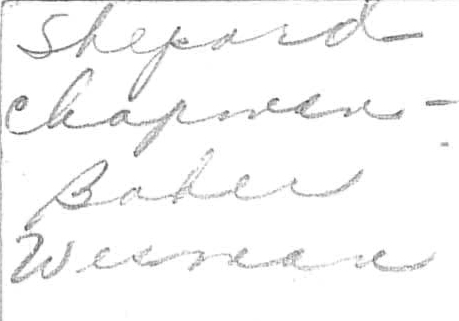 Shepard
Chapman -
Baker
Wesman